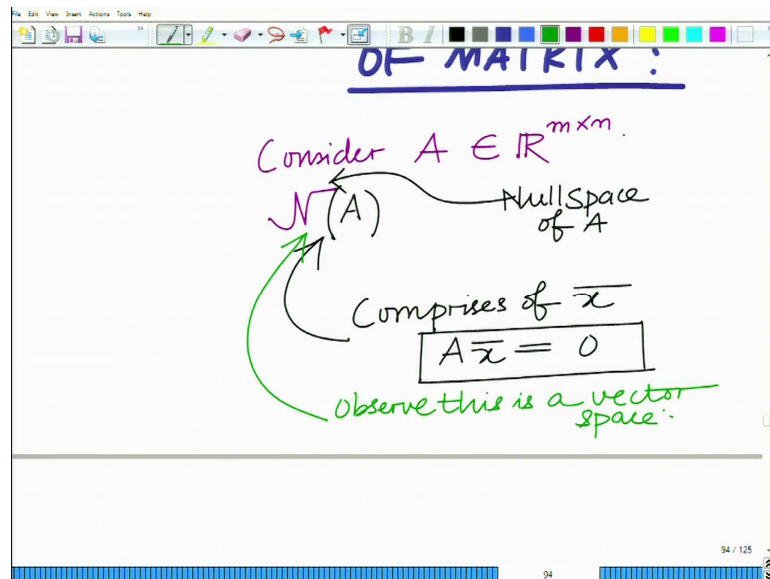 File Edit View Insert Actions Tools Help
B I
OF MATRIX :
Consider A ∈ ℝ^{m×n}.
N(A)
Nullspace
of A
Comprises of x̅
A x̅ = 0
Observe this is a vector
space:
94 / 125
94